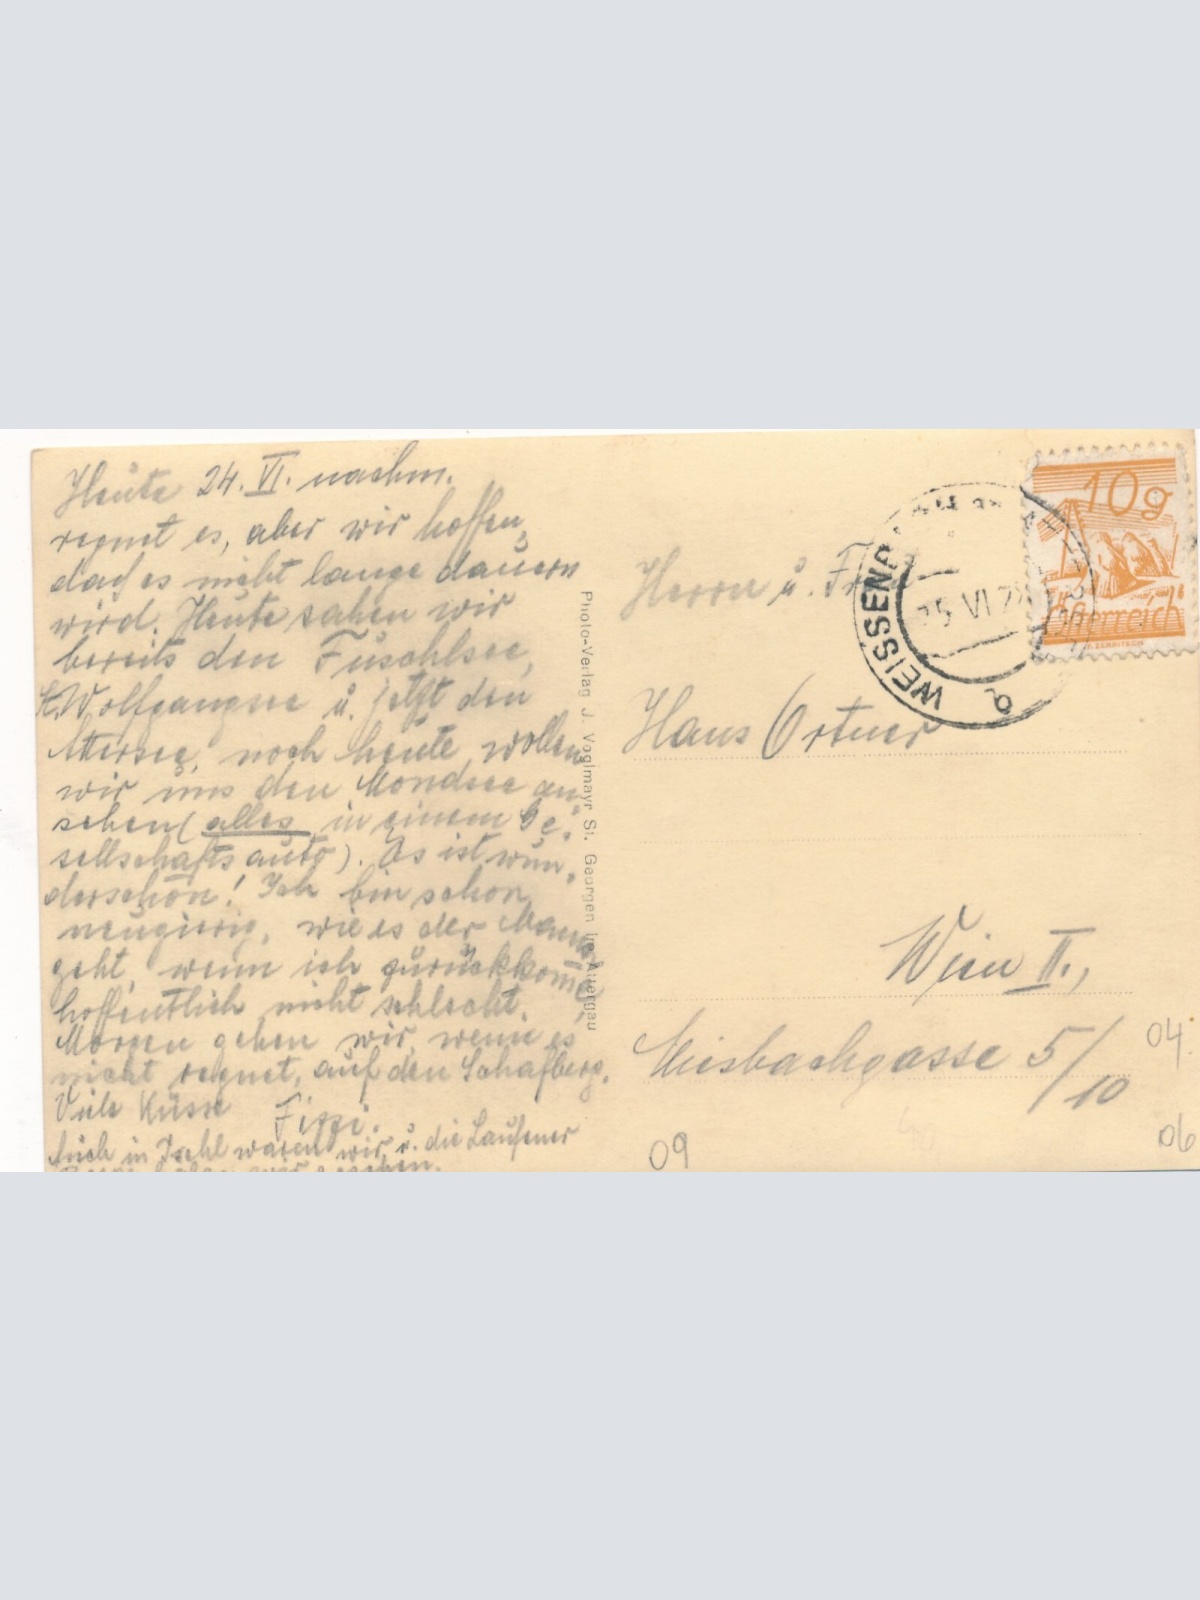 Heute 24. VI. nachm.
regnet es, aber wir hoffen,
daß es nicht lange dauern
wird. Heute sahen wir
bereits den Fuschlsee,
St. Wolfgangsee u. jetzt den
Attersee, noch heute wollen
wir uns den Mondsee an-
sehen (alles in einem Ge-
sellschaftsauto). Es ist wun-
derschön! Ich bin schon
neugierig, wie es der Mama
geht, wenn ich zurückkomme,
hoffentlich nicht schlecht.
Morgen gehen wir, wenn es
nicht regnet, auf den Schafberg.
Viele Küsse Fizzi.
Auch in Ischl waren wir u. die Laufener
haben wir gesehen.
Photo-Verlag J. Voglmayr St. Georgen im Attergau
10g
Österreich
WEISSENB
25 VI 2
Herrn u. Frau
Hans Ortner
Wien II.,
Miesbachgasse 5/10
04.
06
09